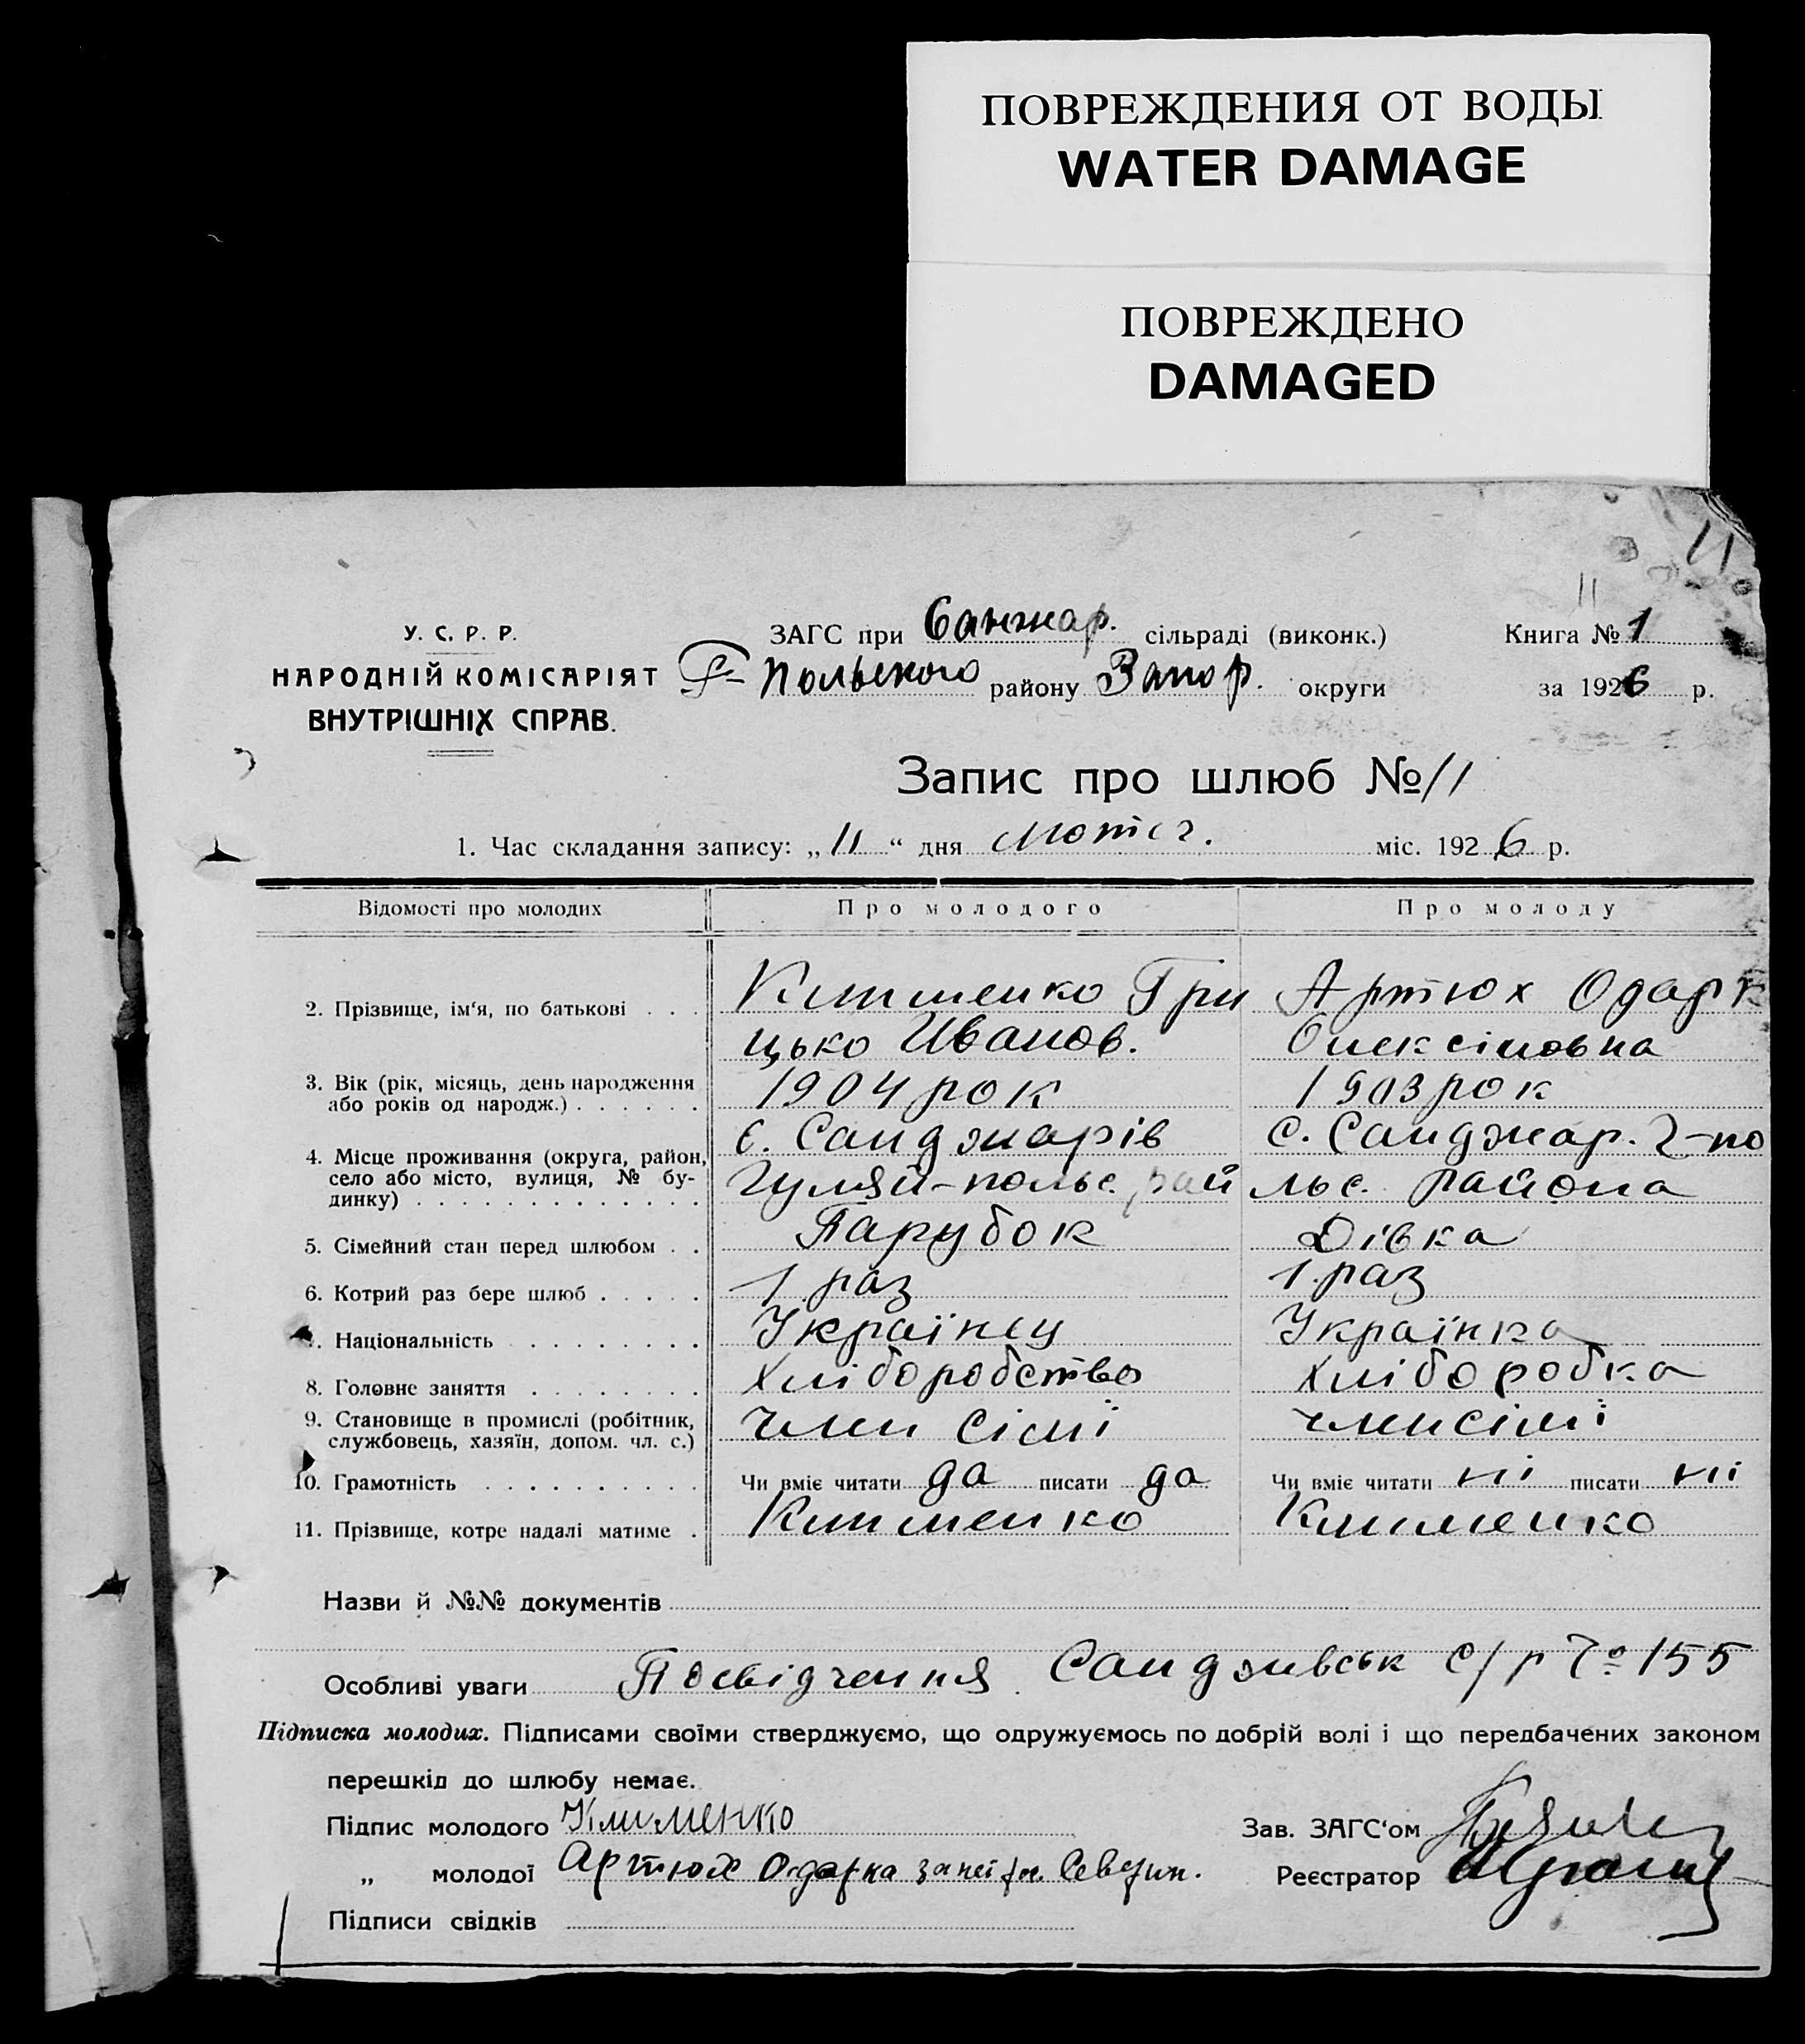 ПОВРЕЖДЕНИЯ ОТ ВОДЫ
WATER DAMAGE
ПОВРЕЖДЕНО
DAMAGED
11
11
У. С. Р. Р.
НАРОДНІЙ КОМІСАРІЯТ
ВНУТРІШНІХ СПРАВ.
ЗАГС при Санжар. сільраді (виконк.)
Г-Польского району Запор. округи
Книга № 1
за 1926 р.
Запис про шлюб № 11
1. Час складання запису: „11“ дня Лютіг. міс. 1926 р.
Відомості про молодих Про молодого Про молоду
2. Прізвище, ім‘я, по батькові . . . Клименко Гри Артюх Одарк
цько Иванов. Олексіиовна
3. Вік (рік, місяць, день народження
або років од народж.) . . . . . . 1904 рок 1903 рок
4. Місце проживання (округа, район,
село або місто, вулиця, № бу-
динку) . . . . . . . . . . . . .
с. Санджарів с. Санджар. Г-по
Гуляй-польс. рай льс. района
5. Сімейний стан перед шлюбом . . Парубок Дівка
6. Котрий раз бере шлюб . . . . . 1 раз 1. раз
7. Національність . . . . . . . . Українец Українка
8. Головне заняття . . . . . . . . Хліборобство Хліборобка
9. Становище в промислі (робітник,
службовець, хазяїн, допом. чл. с.) Член сімї член сімї
10. Грамотність . . . . . . . . . . Чи вміє читати да писати да Чи вміє читати ні писати ні
11. Прізвище, котре надалі матиме . Клименко Клименко
Назви й №№ документів
Особливі уваги Посвідчення Санджівськ с/р № 155
Підписка молодих. Підписами своїми стверджуємо, що одружуємось по добрій волі і що передбачених законом
перешкід до шлюбу немає.
Підпис молодого Клименко Зав. ЗАГС‘ом
„ молодої Артюх Одарка за неї Северин. Реєстратор
Підписи свідків